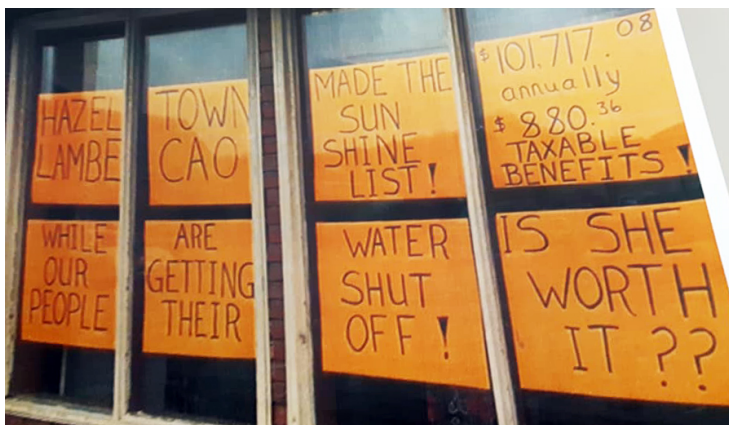 HAZEL
LAMBE
TOWN
CAO
MADE THE
SUN
SHINE
LIST!
$101,717.08
annually
$880.36
TAXABLE
BENEFITS!
WHILE
OUR
PEOPLE
ARE
GETTING
THEIR
WATER
SHUT
OFF!
IS SHE
WORTH
IT??